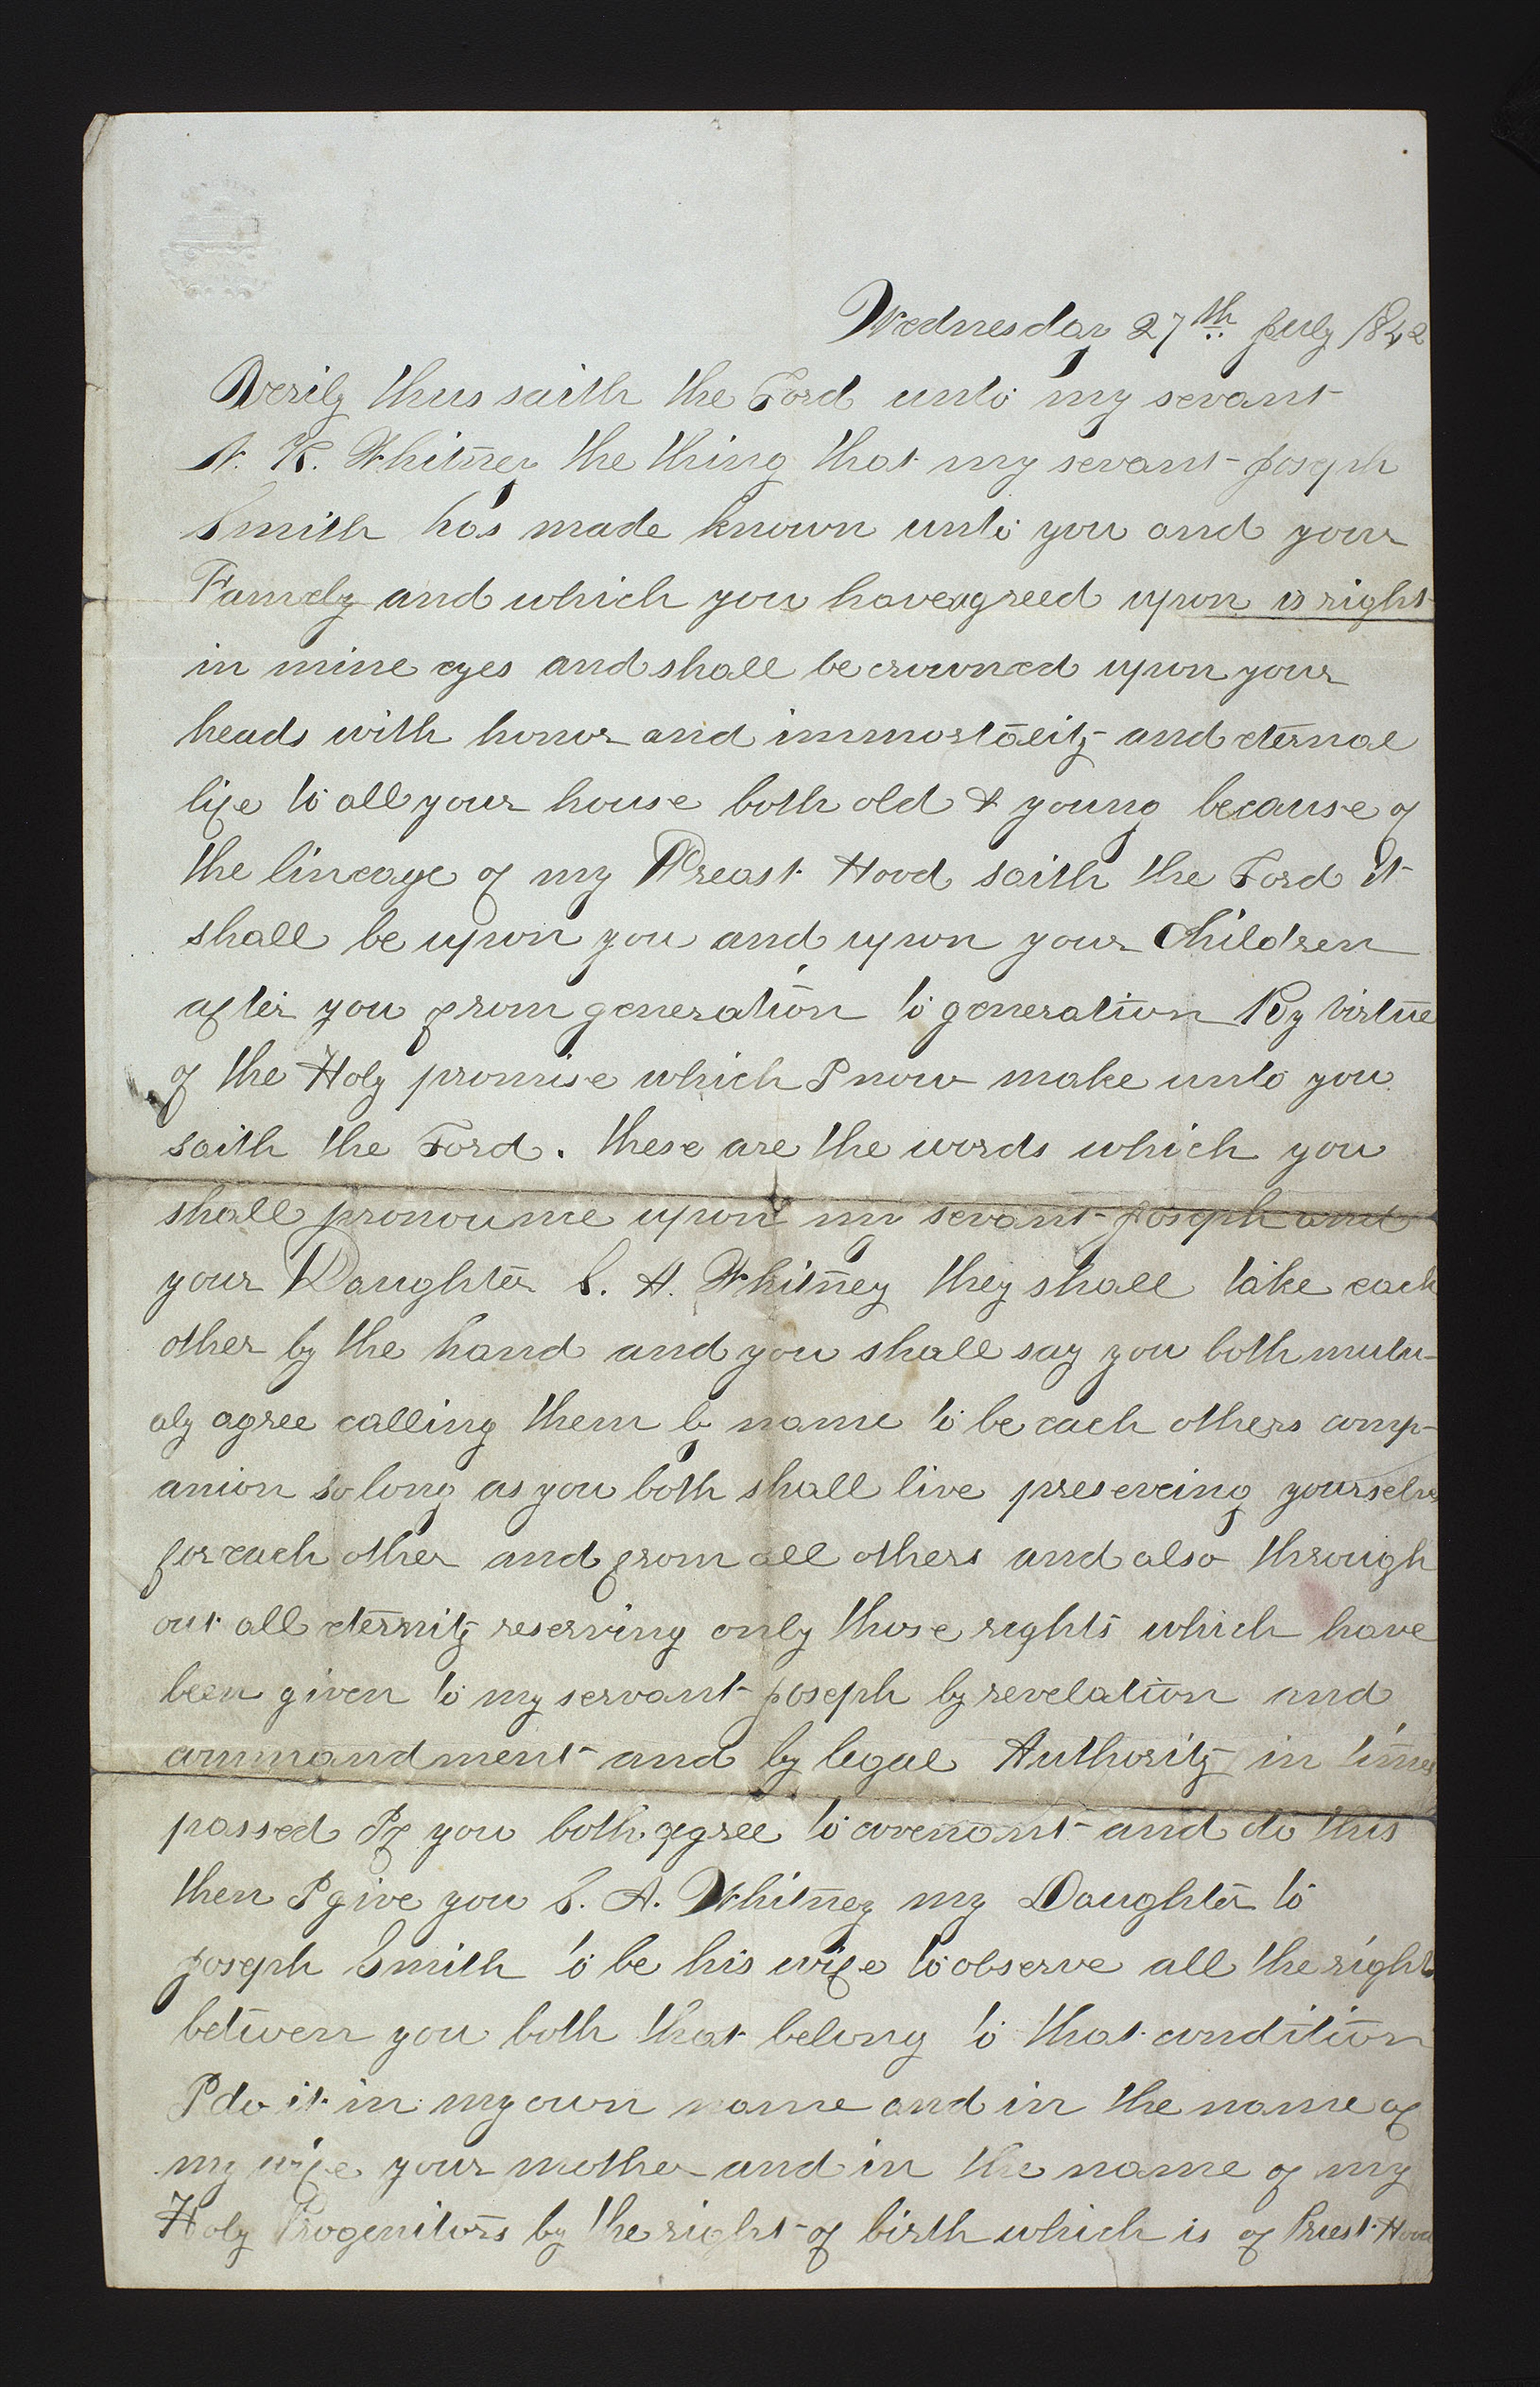 Wednesday 27th July 1842
Verily thus saith the Lord unto my sevant
N. K. Whitney the thing that my sevant Joseph
Smith has made known unto you and your
Famely and which you have agreed upon is right
in mine eyes and shall be crowned upon your
heads with honor and immortality and eternal
life to all your house both old & young because of
the lineage of my Preast Hood saith the Lord it
shall be upon you and upon your Children
after you from generation to generation By virtue
of the Holy promise which I now make unto you
saith the Lord. these are the words which you
shall pronounce upon my sevant Joseph and
your Daughter S. A. Whitney they shall take each
other by the hand and you shall say you both mutu-
aly agree calling them by name to be each others comp-
anion so long as you both shall live preserveing yourselves
for each other and from all others and also through
out all eternity reserving only those rights which have
been given to my servant Joseph by revelation and
commandment and by legal Authority in times
passed If you both agree to covenant and do this
then I give you S. A. Whitney my Daughter to
Joseph Smith to be his wife to observe all the rights
between you both that belong to that condition
I do it in my own name and in the name of
my wife your mother and in the name of my
Holy Progenitors by the right of birth which is of Priest Hood